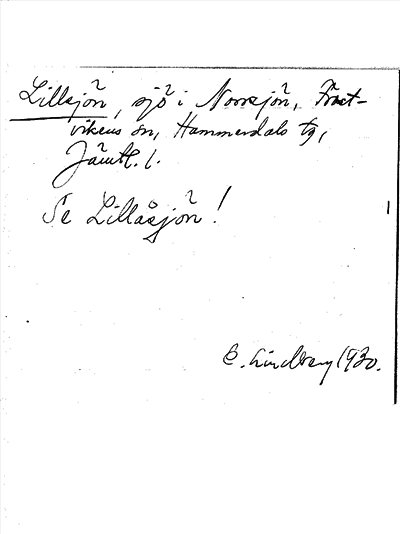 Lillsjön, sjö i Norrsjön, Fröst-
vikens sn, Hammerdals tg,
Jämtl. l.
Se Lillåsjön!
E. Lindberg 1930.